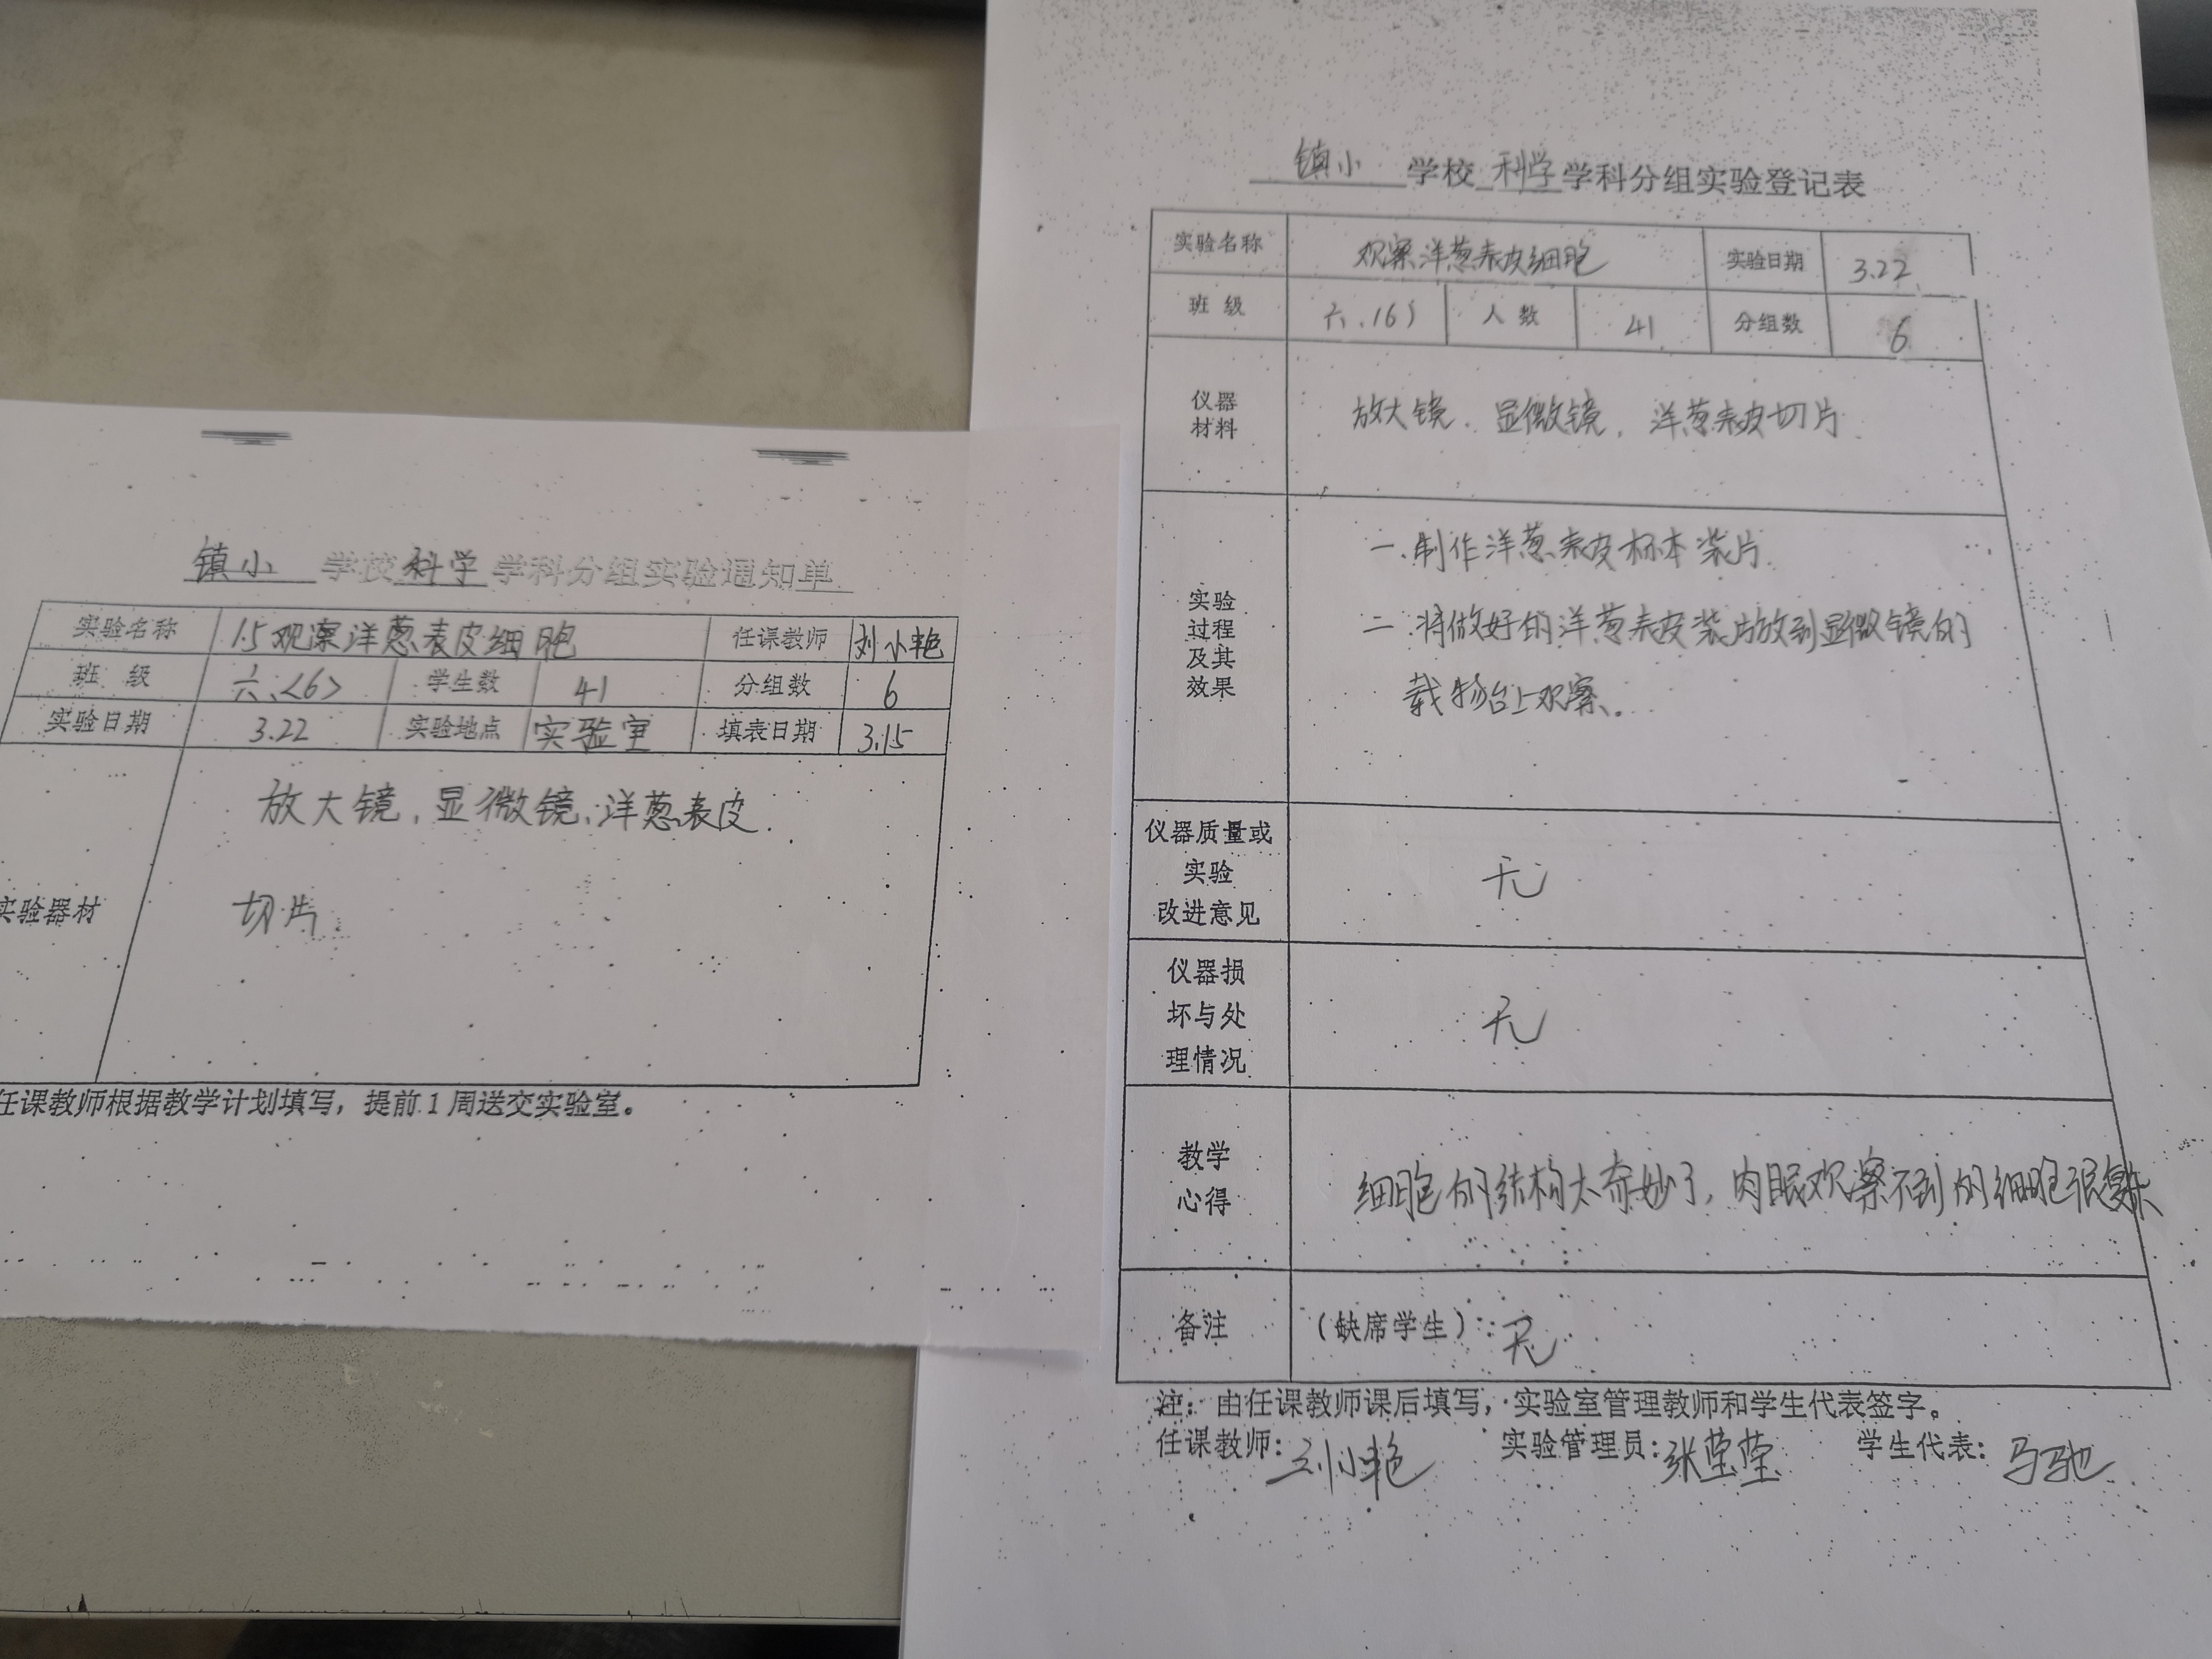 镇小 学校 科学 学科分组实验通知单
实验名称 1.5观察洋葱表皮细胞 任课教师 刘小艳
班 级 六、<6> 学生数 41 分组数 6
实验日期 3.22 实验地点 实验室 填表日期 3.15
实验器材
放大镜、显微镜、洋葱表皮
切片
任课教师根据教学计划填写，提前1周送交实验室。
镇小 学校 科学 学科分组实验登记表
实验名称 观察洋葱表皮细胞 实验日期 3.22
班 级 六、(6) 人 数 41 分组数 6
仪器
材料
放大镜、显微镜、洋葱表皮切片
实验
过程
及其
效果
一.制作洋葱表皮标本装片.
二.将做好的洋葱表皮装片放到显微镜的
载物台上观察。
仪器质量或
实验
改进意见
无
仪器损
坏与处
理情况
无
教学
心得
细胞的结构太奇妙了,肉眼观察不到的细胞很
备注 (缺席学生):无
注：由任课教师课后填写，实验室管理教师和学生代表签字。
任课教师:刘小艳 实验管理员:张莹莹 学生代表:马驰